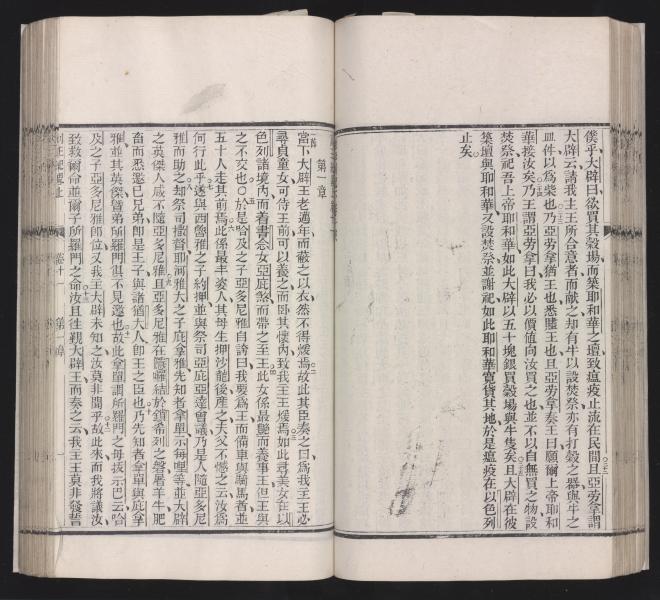 僕乎大辟曰欲買其穀場而築耶和華之壇致瘟疫止流在民間且亞勞拿謂
大辟云請我主王所合意者而獻之却有牛以設焚祭亦有打穀之器與牛之
皿件以為柴也乃亞勞拿猶王也悉賜王也且亞勞拿奏王曰願爾上帝耶和
華接汝矣乃王謂亞勞拿曰我必以價值向汝買之也並不以自無買之物設
焚祭祀吾上帝耶和華如此大辟以五十塊銀買穀場與牛隻矣且大辟在彼
築壇與耶和華又設焚祭並謝祀如此耶和華寬貸其地於是瘟疫在以色列
止矣
第一章
當下大辟王老邁年而蔽之以衣然不得煖焉故此其臣奏之曰為我主王必
尋貞童女可侍王前可以養之而臥其懷內致我主王煖焉如此尋美女在以
色列諸境內而着書念女亞庇煞而帶之至王此女係最艷而養事王但王與
之不交也○於是哈及之子亞多尼雅自誇曰我要為王而備車與騎馬者並
五十人走其前焉此係最丰姿人其母生押沙龍後產之夫父不憾之云汝為
何行此乎遂與西魯雅之子約押並與祭司亞庇亞達會議乃是人隨亞多尼
雅而助之却祭司撒督耶河雅大之子庇拿雅先知者拿單示每哩等並大辟
之英傑人咸不隨亞多尼雅且亞多尼雅在隱囉結於鎖希列之磐屠羊牛肥
畜而悉邀已兄弟即是王子與諸猶大人即王之臣也乃先知者拿單與庇拿
雅並其英傑暨弟所羅門俱不見邀也故此拿單謂所羅門之母拔示巴云哈
及之子亞多尼雅即位又我主大辟未知之汝莫非聞乎故此來而我將議汝
致救爾命並爾子所羅門之命汝且往覲大辟王而奏之云我主王莫非發誓
列王紀畧上 卷十一 第一章